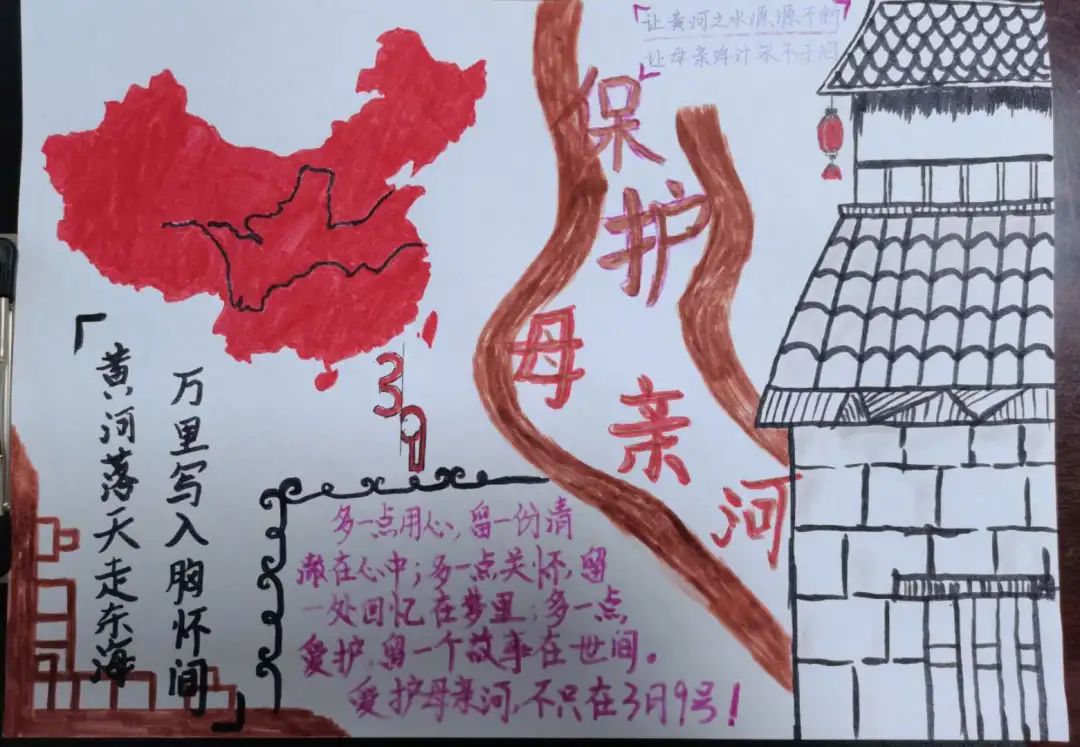 「让黄河之水源源不断
让母亲
保护母亲河
「黄河落天走东海
万里写入胸怀间」
3 9
多一点用心,留一份清
澈在心中;多一点关怀,留
一处回忆在梦里;多一点
爱护,留一个故事在世间。
爱护母亲河,不只在3月9号!